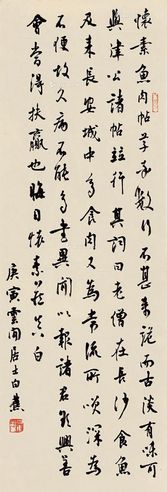 懷素魚肉帖草書數行不甚來說而古淡有味可
與律公諸帖並行其詞曰老僧在長沙食魚
及來長安城中多食肉又為常流所笑深為
不便故久病不能多書異聞以報諸君欲興善
會當得扶羸也晦日懷素藏真白
庚寅雲間居士白蕉